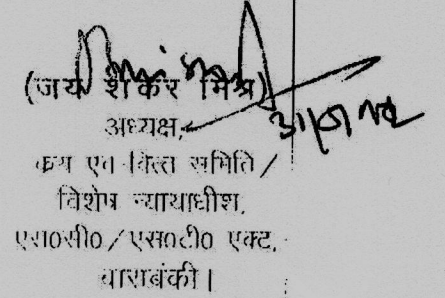 (जय शंकर मिश्र)
अध्यक्ष,
क्रय एवं वित्त समिति/
विशेष न्यायाधीश,
एस0सी0/एस0टी0 एक्ट,
बाराबंकी।